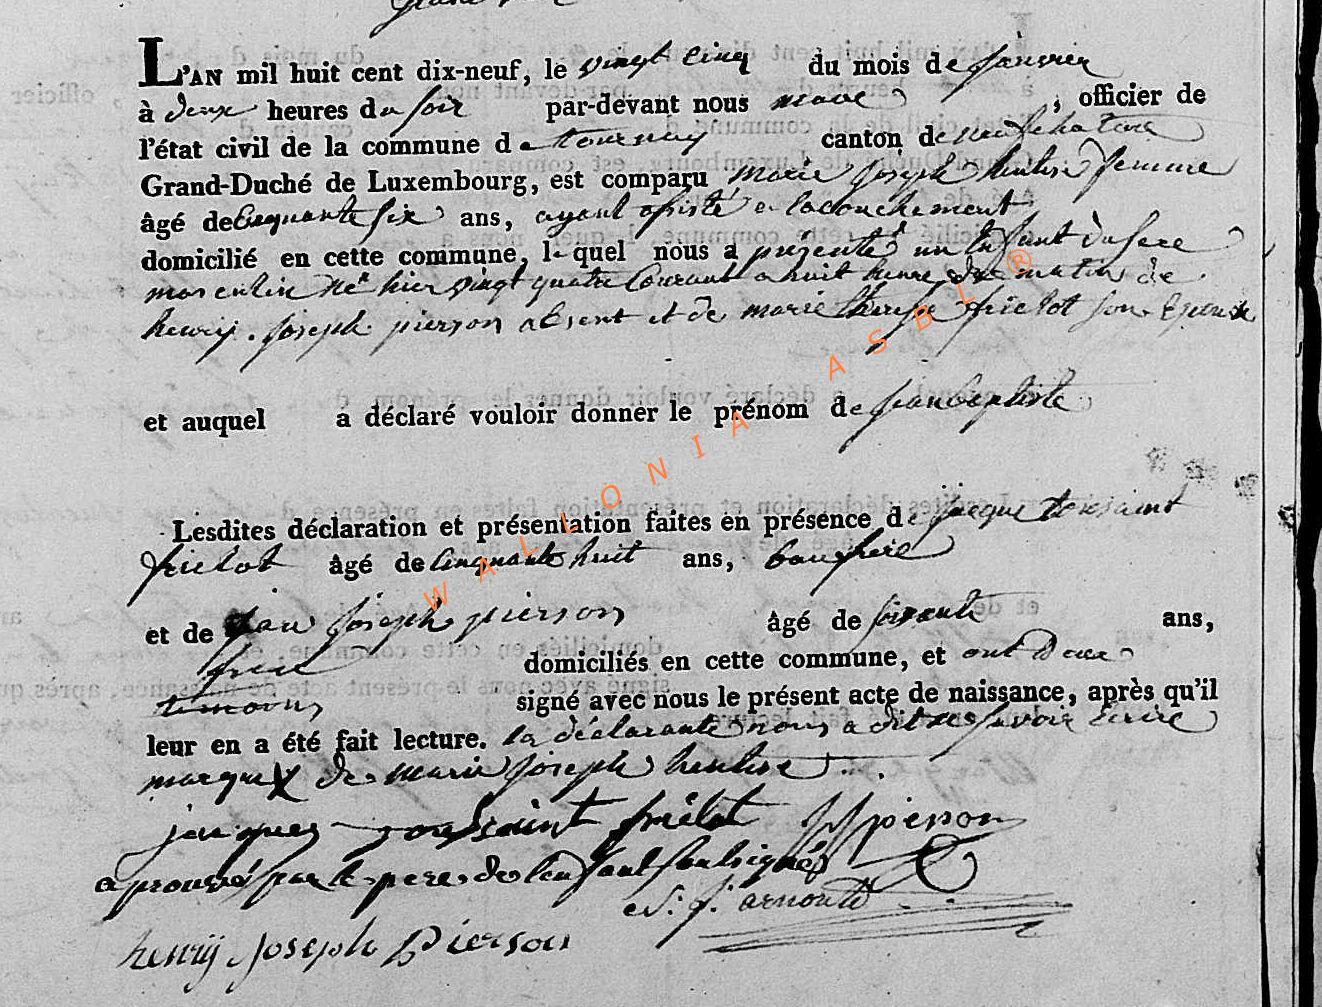 L'AN mil huit cent dix-neuf, le vingt cinq du mois de janvier
à deux heures du soir par-devant nous maire, officier de
l'état civil de la commune de tournay canton de neufchateau
Grand-Duché de Luxembourg, est comparu marie joseph femme
âgé de cinquante six ans, ayant assisté a lacouchement
domicilié en cette commune, lequel nous a présenté un enfant du sexe
masculin né hier vingt quatre courant a huit heure du matin de
henrij joseph pierson absent et de marie therese frielot son epouse
et auquel a déclaré vouloir donner le prénom de jean baptiste
Lesdites déclaration et présentation faites en présence de jacque toussaint
frielot âgé de cinquante huit ans,
et de jean joseph pierson âgé de soixante ans,
domiciliés en cette commune, et ont Deux
temoins signé avec nous le présent acte de naissance, après qu'il
leur en a été fait lecture. la déclarante nous a dit ne savoir ecrire
marque X de marie joseph
jacques toussaint friélot JJ pierson
aprouvé par le pere de lenfant soussigné
arnould
henrij Joseph Pierson
WALLONIA ASBL ®